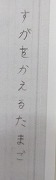 すがをかえるたまご